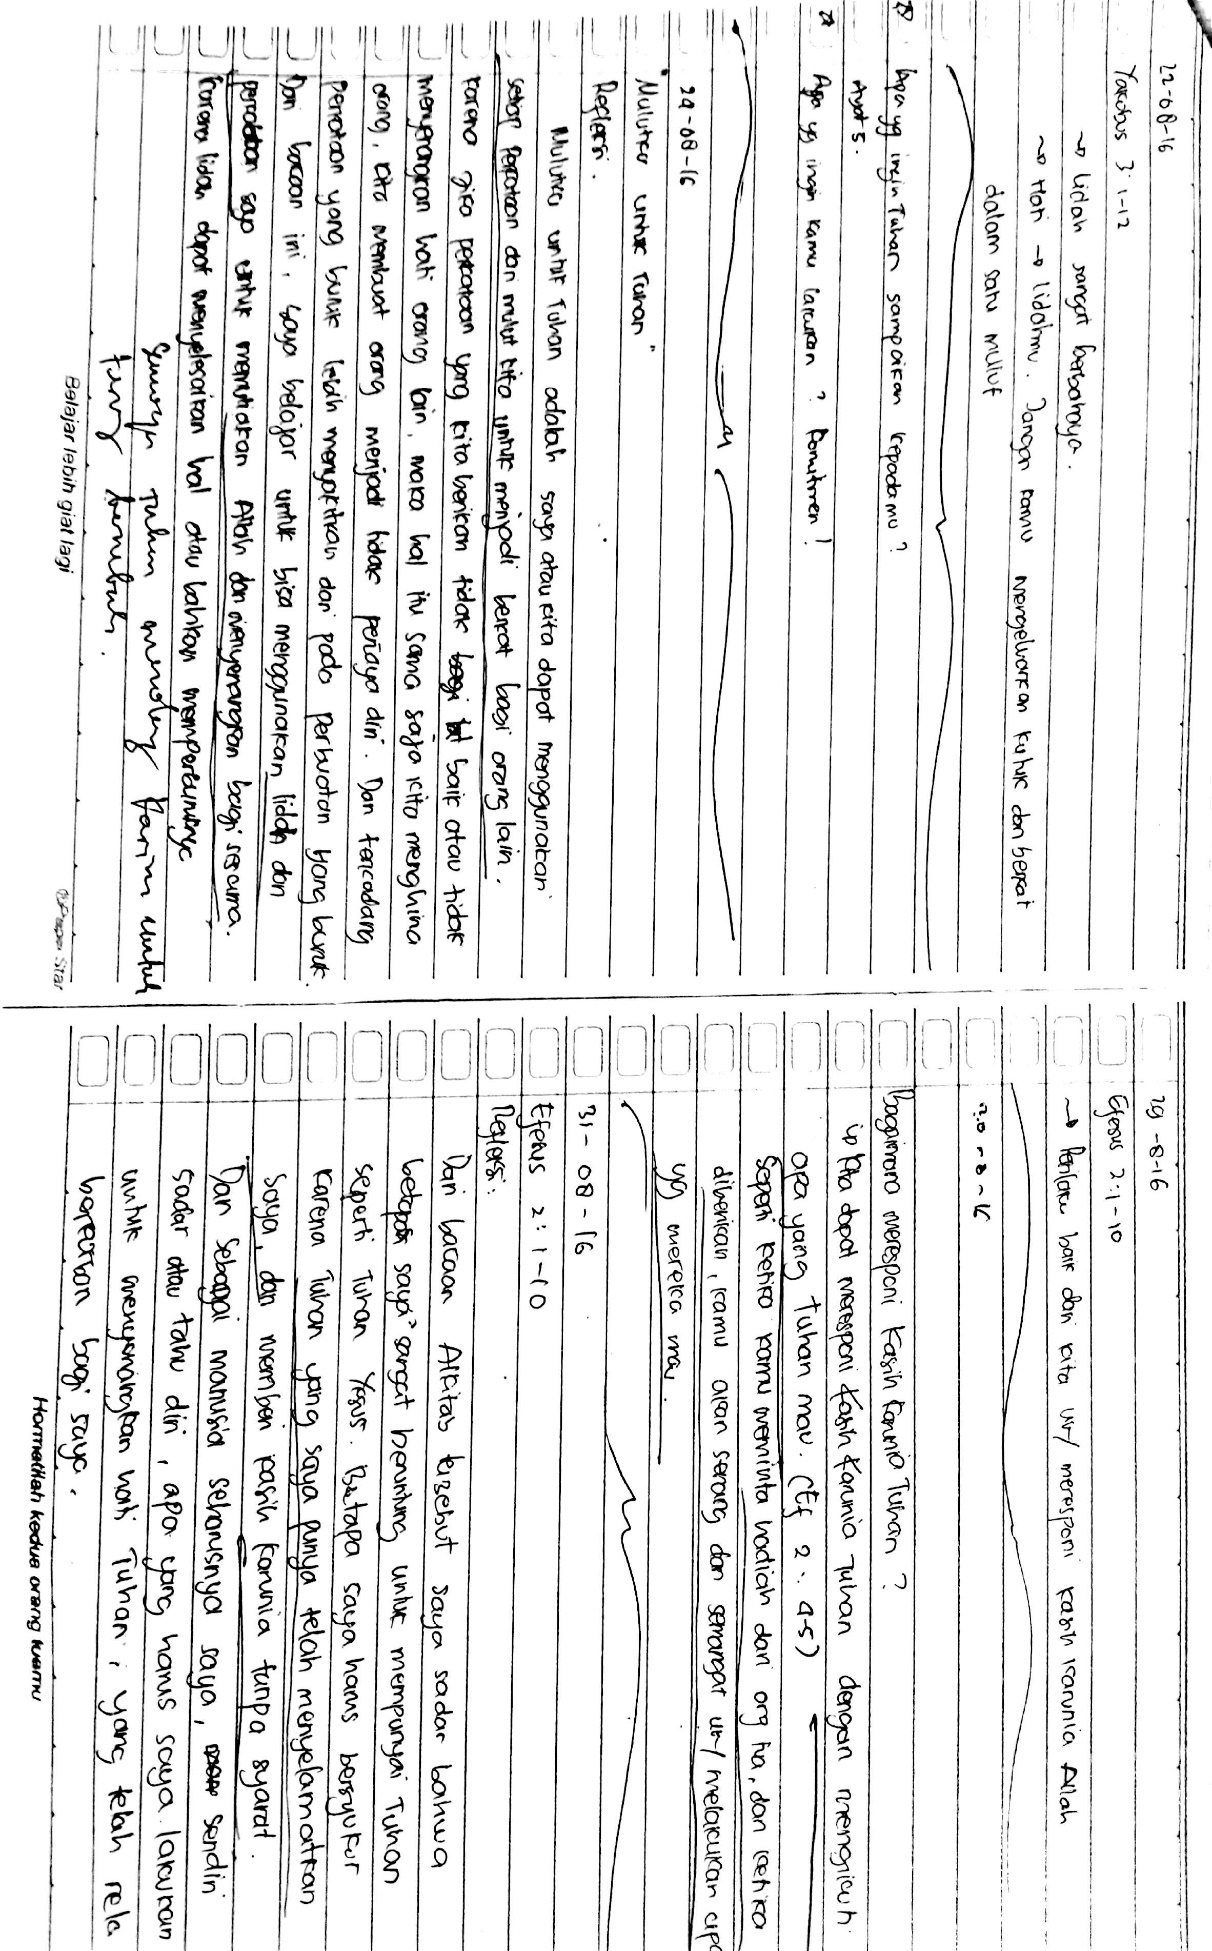 22-08-16
Yakobus 3:1-12
→ Lidah sangat berbahaya.
→ Hati → lidahmu. Jangan kamu mengeluarkan kutuk dan berkat
dalam satu mulut
Apa yg ingin Tuhan sampaikan kepadamu?
Ayat 5.
Apa yg ingin kamu lakukan? Komitmen!
24-08-16
"Mulutku untuk Tuhan"
Refleksi.
Mulutku untuk Tuhan adalah saya atau kita dapat menggunakan
setiap perkataan dari mulut kita untuk menjadi berkat bagi orang lain.
Karena jika perkataan yang kita berikan tidak baik atau tidak
menyenangkan hati orang lain, maka hal itu sama saja kita menghina
orang, kita membuat orang menjadi tidak percaya diri. Dan terkadang
perkataan yang buruk lebih menyakitkan dari pada perbuatan yang buruk.
Dari bacaan ini, saya belajar untuk bisa menggunakan lidah dan
perkataan saya untuk memuliakan Allah dan menyenangkan bagi sesama.
Karena lidah dapat menyelesaikan hal atau bahkan memperburuknya
Semoga Tuhan menolong Karin untuk
terus berubah.
Belajar lebih giat lagi
29-8-16
Efesus 2:1-10
→ Perilaku baik dari kita utk/ meresponi kasih karunia Allah
30-8-16
Bagaimana meresponi Kasih Karunia Tuhan?
Kita dapat meresponi Kasih Karunia Tuhan dengan mengikuti
apa yang Tuhan mau. (Ef 2:4-5)
Seperti ketika kamu meminta hadiah dari org tua, dan ketika
diberikan, kamu akan senang dan semangat utk/ melakukan apa
yg mereka mau.
31-08-16
Efesus 2:1-10
Refleksi:
Dari bacaan Alkitab tersebut saya sadar bahwa
betapa saya sangat beruntung untuk mempunyai Tuhan
seperti Tuhan Yesus. Betapa saya harus bersyukur
karena Tuhan yang saya punya telah menyelamatkan
saya, dan memberi kasih karunia tanpa syarat.
Dan sebagai manusia seharusnya saya, sendiri
sadar atau tahu diri, apa yang harus saya lakukan
untuk menyenangkan hati Tuhan; yang telah rela
berkorban bagi saya.
Hormatilah kedua orang tuamu